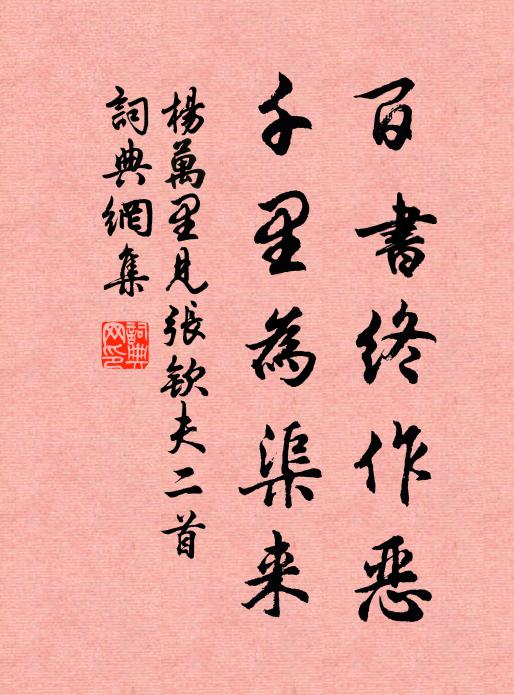 百書終作惡
千里為渠来
楊萬里見張欽夫二首
詞典網集
詞典
网印